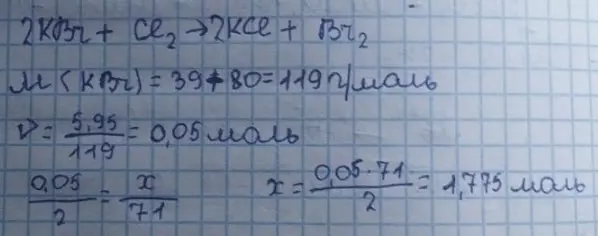 2KBr + Cl₂ → 2KCl + Br₂
M(KBr) = 39+80 = 119 г/моль
ν = 5,95/119 = 0,05 моль
0,05/2 = x/71 x = 0,05·71/2 = 1,775 моль